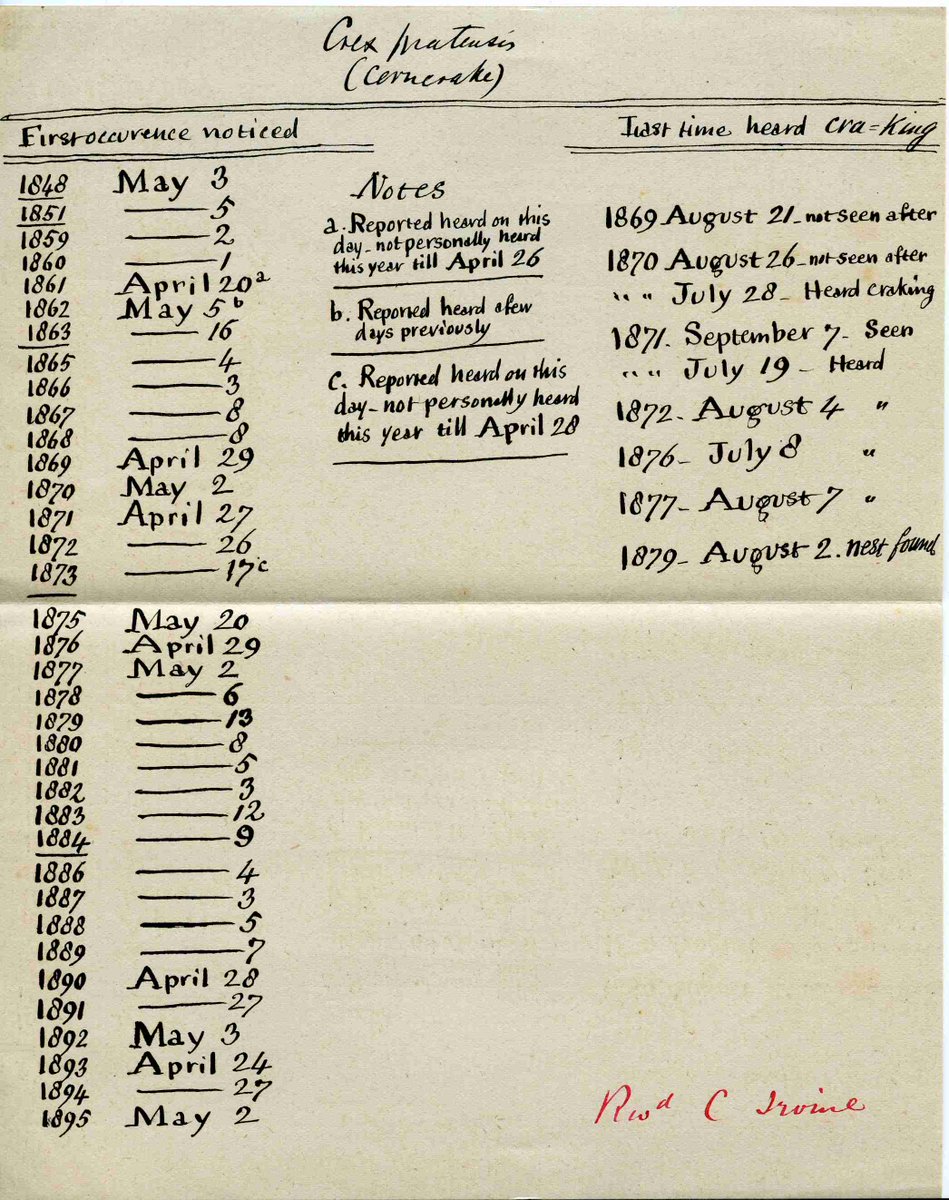 Crex pratensis
(Corncrake)
First occurence noticed
1848 May 3
1851 —— 5
1859 —— 2
1860 —— 1
1861 April 20 a
1862 May 5 b
1863 —— 16
1865 —— 4
1866 —— 3
1867 —— 8
1868 —— 8
1869 April 29
1870 May 2
1871 April 27
1872 —— 26
1873 —— 17 c
1875 May 20
1876 April 29
1877 May 2
1878 —— 6
1879 —— 13
1880 —— 8
1881 —— 5
1882 —— 3
1883 —— 12
1884 —— 9
1886 —— 4
1887 —— 3
1888 —— 5
1889 —— 7
1890 April 28
1891 —— 27
1892 May 3
1893 April 24
1894 —— 27
1895 May 2
Notes
a. Reported heard on this
day - not personally heard
this year till April 26
b. Reported heard a few
days previously
c. Reported heard on this
day - not personally heard
this year till April 28
Last time heard cra=king
1869 August 21 - not seen after
1870 August 26 - not seen after
" " July 28 - Heard craking
1871. September 7 - Seen
" " July 19 - Heard
1872 - August 4 "
1876 - July 8 "
1877 - August 7 "
1879 - August 2. nest found
Rev^d C Irvine